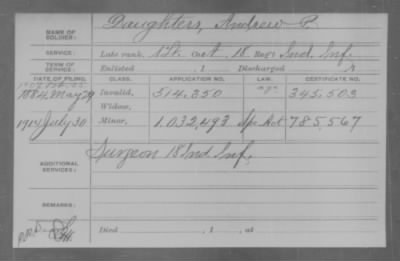 NAME OF SOLDIER: Daughters, Andrew P.
SERVICE: Late rank, 1 Lt. Co A 18 Reg't Ind. Inf.
TERM OF SERVICE: Enlisted , 1 Discharged , 1
DATE OF FILING. CLASS. APPLICATION NO. LAW. CERTIFICATE NO.
1884 May 29 Invalid, 514,350 345,503
Widow,
1914 July 30 Minor, 1,032,493 Spe. Act 785,567
ADDITIONAL SERVICES: Surgeon 18 Ind. Inf.
REMARKS:
Died , 1 , at